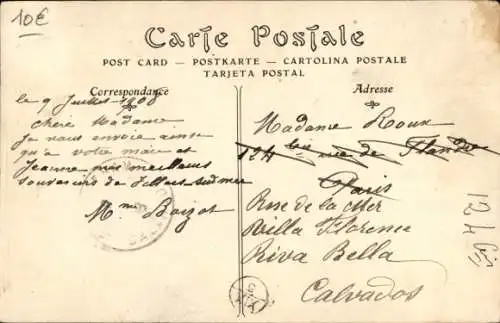 10€
Carte Postale
POST CARD — POSTKARTE — CARTOLINA POSTALE
TARJETA POSTAL
Correspondance
le 9 Juillet 1908
Chère Madame
Je vous envoie ainsi
qu'a votre mari et
Jeanne mes meilleurs
souvenirs de Villers-sur-mer
Mme Boizot
Adresse
Madame Roux
124 bis rue de Flandre
Paris
Rue de la Mer
Villa Florence
Riva Bella
Calvados